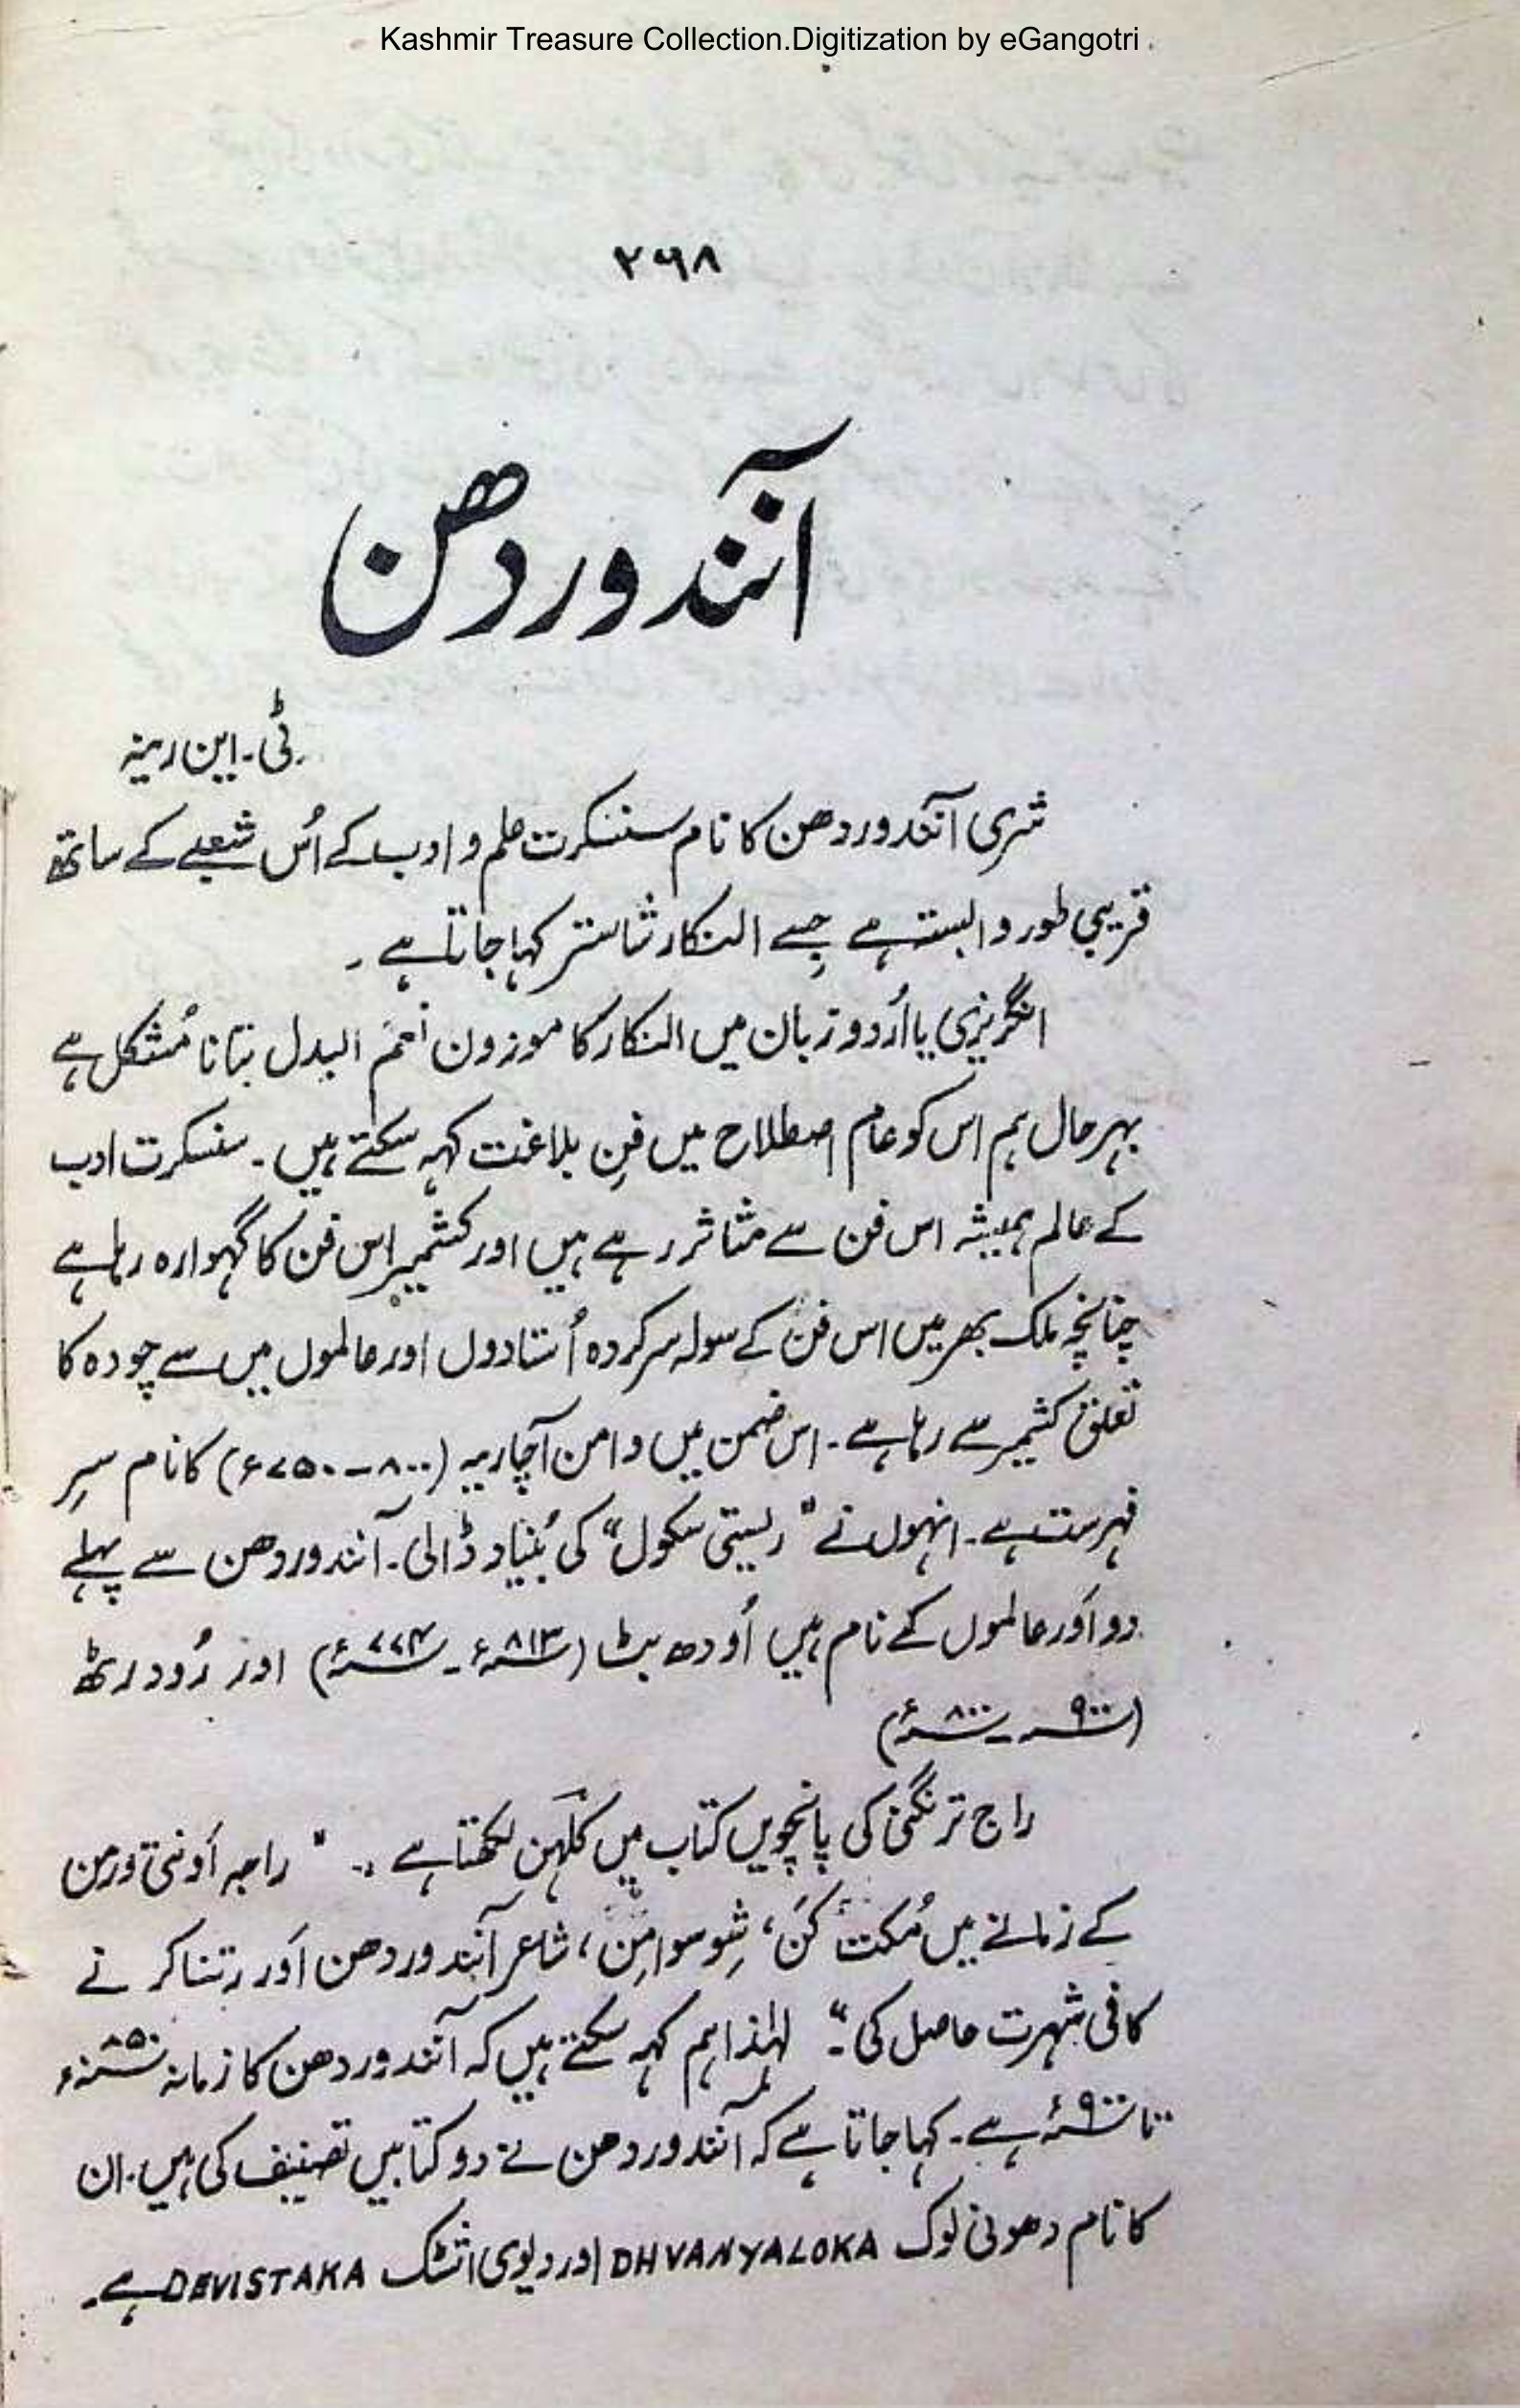 Kashmir Treasure Collection.Digitization by eGangotri
۲۶۸
آنندوردھن
ٹی۔ این رینہ
شری آنندوردھن کا نام سنسکرت علم و ادب کے اُس شعبے کے ساتھ
قریبی طور وابستہ ہے جسے النکار شاستر کہا جاتا ہے ۔
انگریزی یا اُردو زبان میں النکار کا موزون نعم البدل بتانا مُشکل ہے
بہرحال ہم اس کو عام اصطلاح میں فنِ بلاغت کہہ سکتے ہیں ۔ سنسکرت ادب
کے عالم ہمیشہ اس فن سے متاثر رہے ہیں اور کشمیر اس فن کا گہوارہ رہا ہے
چنانچہ ملک بھر میں اس فن کے سولہ سرکردہ اُستادوں اور عالموں میں سے چودہ کا
تعلق کشمیر سے رہا ہے ۔ اس ضمن میں وامن آچاریہ (۸۰۰ – ۷۵۰ء) کا نام سرِ
فہرست ہے ۔ انہوں نے " ریتی سکول" کی بُنیاد ڈالی ۔ آنندوردھن سے پہلے
دو اَور عالموں کے نام ہیں اُودھ بٹ (۸۱۳ء ۔ ۷۷۴ء) اور رُودرٹھ
(۹۰۰ ۔ ۸۰۰ء)
راج ترنگنی کی پانچویں کتاب میں کلہن لکھتا ہے :۔ " راجہ اَونتی ورمن
کے زمانے میں مُکت کنَ، شِوسوامِن، شاعر آنندوردھن اَور رتناکر نے
کافی شہرت حاصل کی"۔ لہٰذا ہم کہہ سکتے ہیں کہ آنندوردھن کا زمانہ ۸۵۰ء
تا ۹۰۰ء ہے ۔ کہا جاتا ہے کہ آنندوردھن نے دو کتابیں تصنیف کی ہیں ۔ ان
کا نام دھونی لوک DHVANYALOKA اور دیوی اشٹک DEVISTAKA ہے ۔